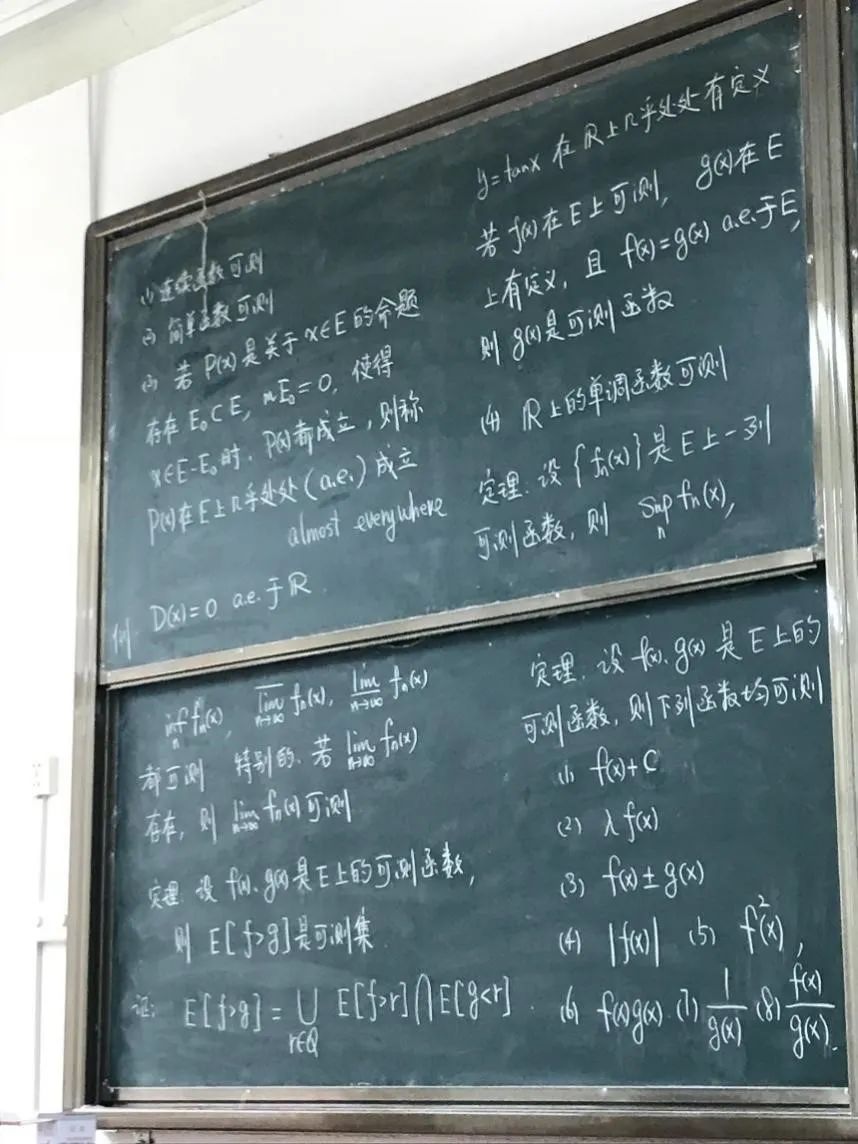 (1) 连续函数可测
(2) 简单函数可测
(3) 若 P(x) 是关于 x∈E 的命题
存在 E₀⊂E, mE₀=0, 使得
x∈E-E₀时, P(x)都成立, 则称
P(x)在E上几乎处处(a.e.)成立
almost everywhere
例. D(x)=0 a.e.于ℝ.
y=tanx 在ℝ上几乎处处有定义
若 f(x)在E上可测, g(x)在E
上有定义, 且 f(x)=g(x) a.e.于E,
则 g(x)是可测函数
(4) ℝ上的单调函数可测
定理. 设{fₙ(x)}是E上一列
可测函数, 则 sup_n fₙ(x),
inf_n fₙ(x), \overline{lim}_{n→∞} fₙ(x), \underline{lim}_{n→∞} fₙ(x)
都可测 特别的, 若 lim_{n→∞} fₙ(x)
存在, 则 lim_{n→∞} fₙ(x)可测
定理. 设 f(x), g(x)是E上的可测函数,
则 E[f>g]是可测集.
证: E[f>g] = ⋃_{r∈Q} E[f>r]⋂E[g<r].
定理. 设 f(x), g(x)是E上的
可测函数, 则下列函数均可测
(1) f(x)+C
(2) λf(x)
(3) f(x)±g(x)
(4) |f(x)| (5) f²(x),
(6) f(x)g(x). (7) 1/g(x) (8) f(x)/g(x).